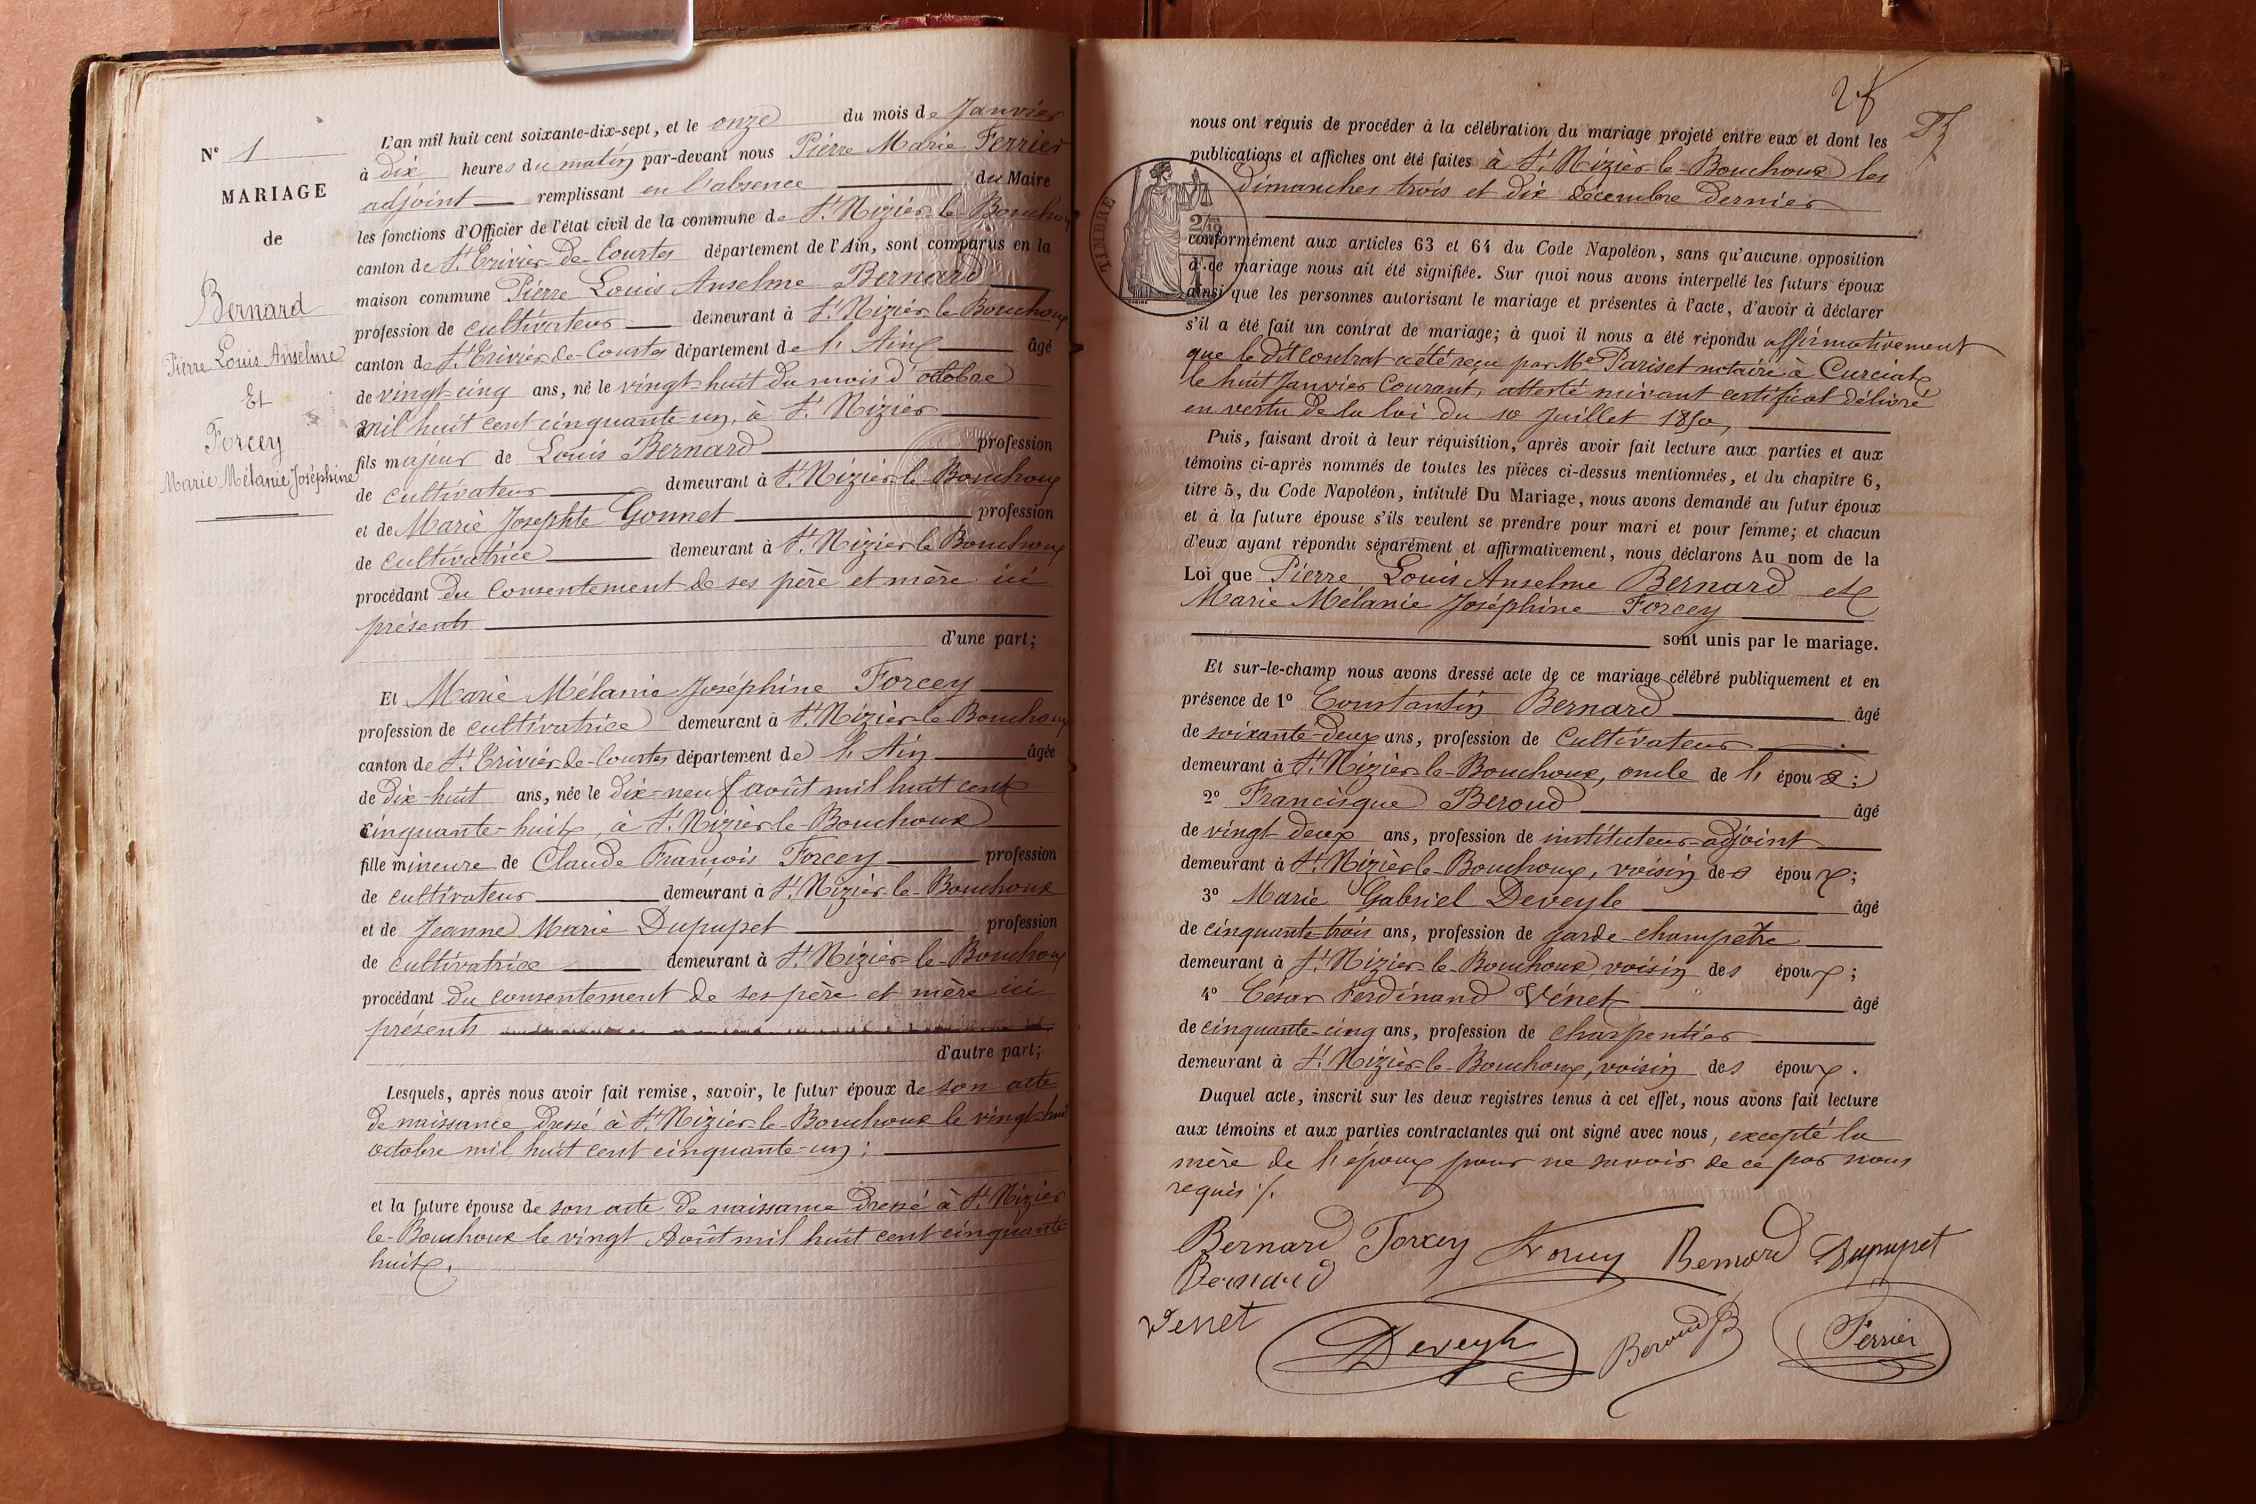 N° 1
MARIAGE
de
Bernard
Pierre Louis Anselme
Et
Forcey
Marie Mélanie Joséphine
L'an mil huit cent soixante-dix-sept, et le onze du mois de Janvier
à dix heures du matin par-devant nous Pierre Marie Ferrier
adjoint remplissant en l'absence du Maire
les fonctions d'Officier de l'état civil de la commune de St Nizier-le-Bouchoux
canton de St Trivier-de-Courtes département de l'Ain, sont comparus en la
maison commune Pierre Louis Anselme Bernard
profession de cultivateur demeurant à St Nizier-le-Bouchoux
canton de St Trivier-de-Courtes département de l'Ain âgé
de vingt-cinq ans, né le vingt-huit du mois d'octobre
mil huit cent cinquante-un, à St Nizier
fils majeur de Louis Bernard profession
de cultivateur demeurant à St Nizier-le-Bouchoux
et de Marie Josephte Gonnet profession
de cultivatrice demeurant à St Nizier-le-Bouchoux
procédant du consentement de ses père et mère ici
présents
d'une part;
Et Marie Mélanie Joséphine Forcey
profession de cultivatrice demeurant à St Nizier-le-Bouchoux
canton de St Trivier-de-Courtes département de l'Ain âgée
de dix-huit ans, née le dix-neuf août mil huit cent
cinquante-huit, à St Nizier-le-Bouchoux
fille mineure de Claude François Forcey profession
de cultivateur demeurant à St Nizier-le-Bouchoux
et de Jeanne Marie Dupupet profession
de cultivatrice demeurant à St Nizier-le-Bouchoux
procédant du consentement de ses père et mère ici
présents
d'autre part;
Lesquels, après nous avoir fait remise, savoir, le futur époux de son acte
de naissance dressé à St Nizier-le-Bouchoux le vingt-huit
octobre mil huit cent cinquante-un;
et la future épouse de son acte de naissance dressé à St Nizier
le-Bouchoux le vingt Août mil huit cent cinquante-
huit.
nous ont requis de procéder à la célébration du mariage projeté entre eux et dont les
publications et affiches ont été faites à St Nizier-le-Bouchoux les
dimanches trois et dix décembre dernier
TIMBRE
conformément aux articles 63 et 64 du Code Napoléon, sans qu'aucune opposition
d'.ce mariage nous ait été signifiée. Sur quoi nous avons interpellé les futurs époux
ainsi que les personnes autorisant le mariage et présentes à l'acte, d'avoir à déclarer
s'il a été fait un contrat de mariage; à quoi il nous a été répondu affirmativement
que le dit contrat a été reçu par Me Pariset notaire à Curciat
le huit Janvier courant, attesté suivant certificat délivré
en vertu de la loi du 10 Juillet 1850,
Puis, faisant droit à leur réquisition, après avoir fait lecture aux parties et aux
témoins ci-après nommés de toutes les pièces ci-dessus mentionnées, et du chapitre 6,
titre 5, du Code Napoléon, intitulé Du Mariage, nous avons demandé au futur époux
et à la future épouse s'ils veulent se prendre pour mari et pour femme; et chacun
d'eux ayant répondu séparément et affirmativement, nous déclarons Au nom de la
Loi que Pierre Louis Anselme Bernard et
Marie Mélanie Joséphine Forcey
sont unis par le mariage.
Et sur-le-champ nous avons dressé acte de ce mariage célébré publiquement et en
présence de 1° Constantin Bernard âgé
de soixante-deux ans, profession de cultivateur
demeurant à St Nizier-le-Bouchoux, oncle de l'époux;
2° Francisque Beroud âgé
de vingt-deux ans, profession de instituteur-adjoint
demeurant à St Nizier-le-Bouchoux, voisin des époux;
3° Marie Gabriel Deveyle âgé
de cinquante-trois ans, profession de garde champêtre
demeurant à St Nizier-le-Bouchoux voisin des époux;
4° César Ferdinand Vénet âgé
de cinquante-cinq ans, profession de charpentier
demeurant à St Nizier-le-Bouchoux, voisin des époux.
Duquel acte, inscrit sur les deux registres tenus à cet effet, nous avons fait lecture
aux témoins et aux parties contractantes qui ont signé avec nous, excepté la
mère de l'époux pour ne savoir de ce par nous
requis ./.
Bernard Forcey Forcey Bernard Dupupet
Bernard
Venet Deveyle Beroud Ferrier